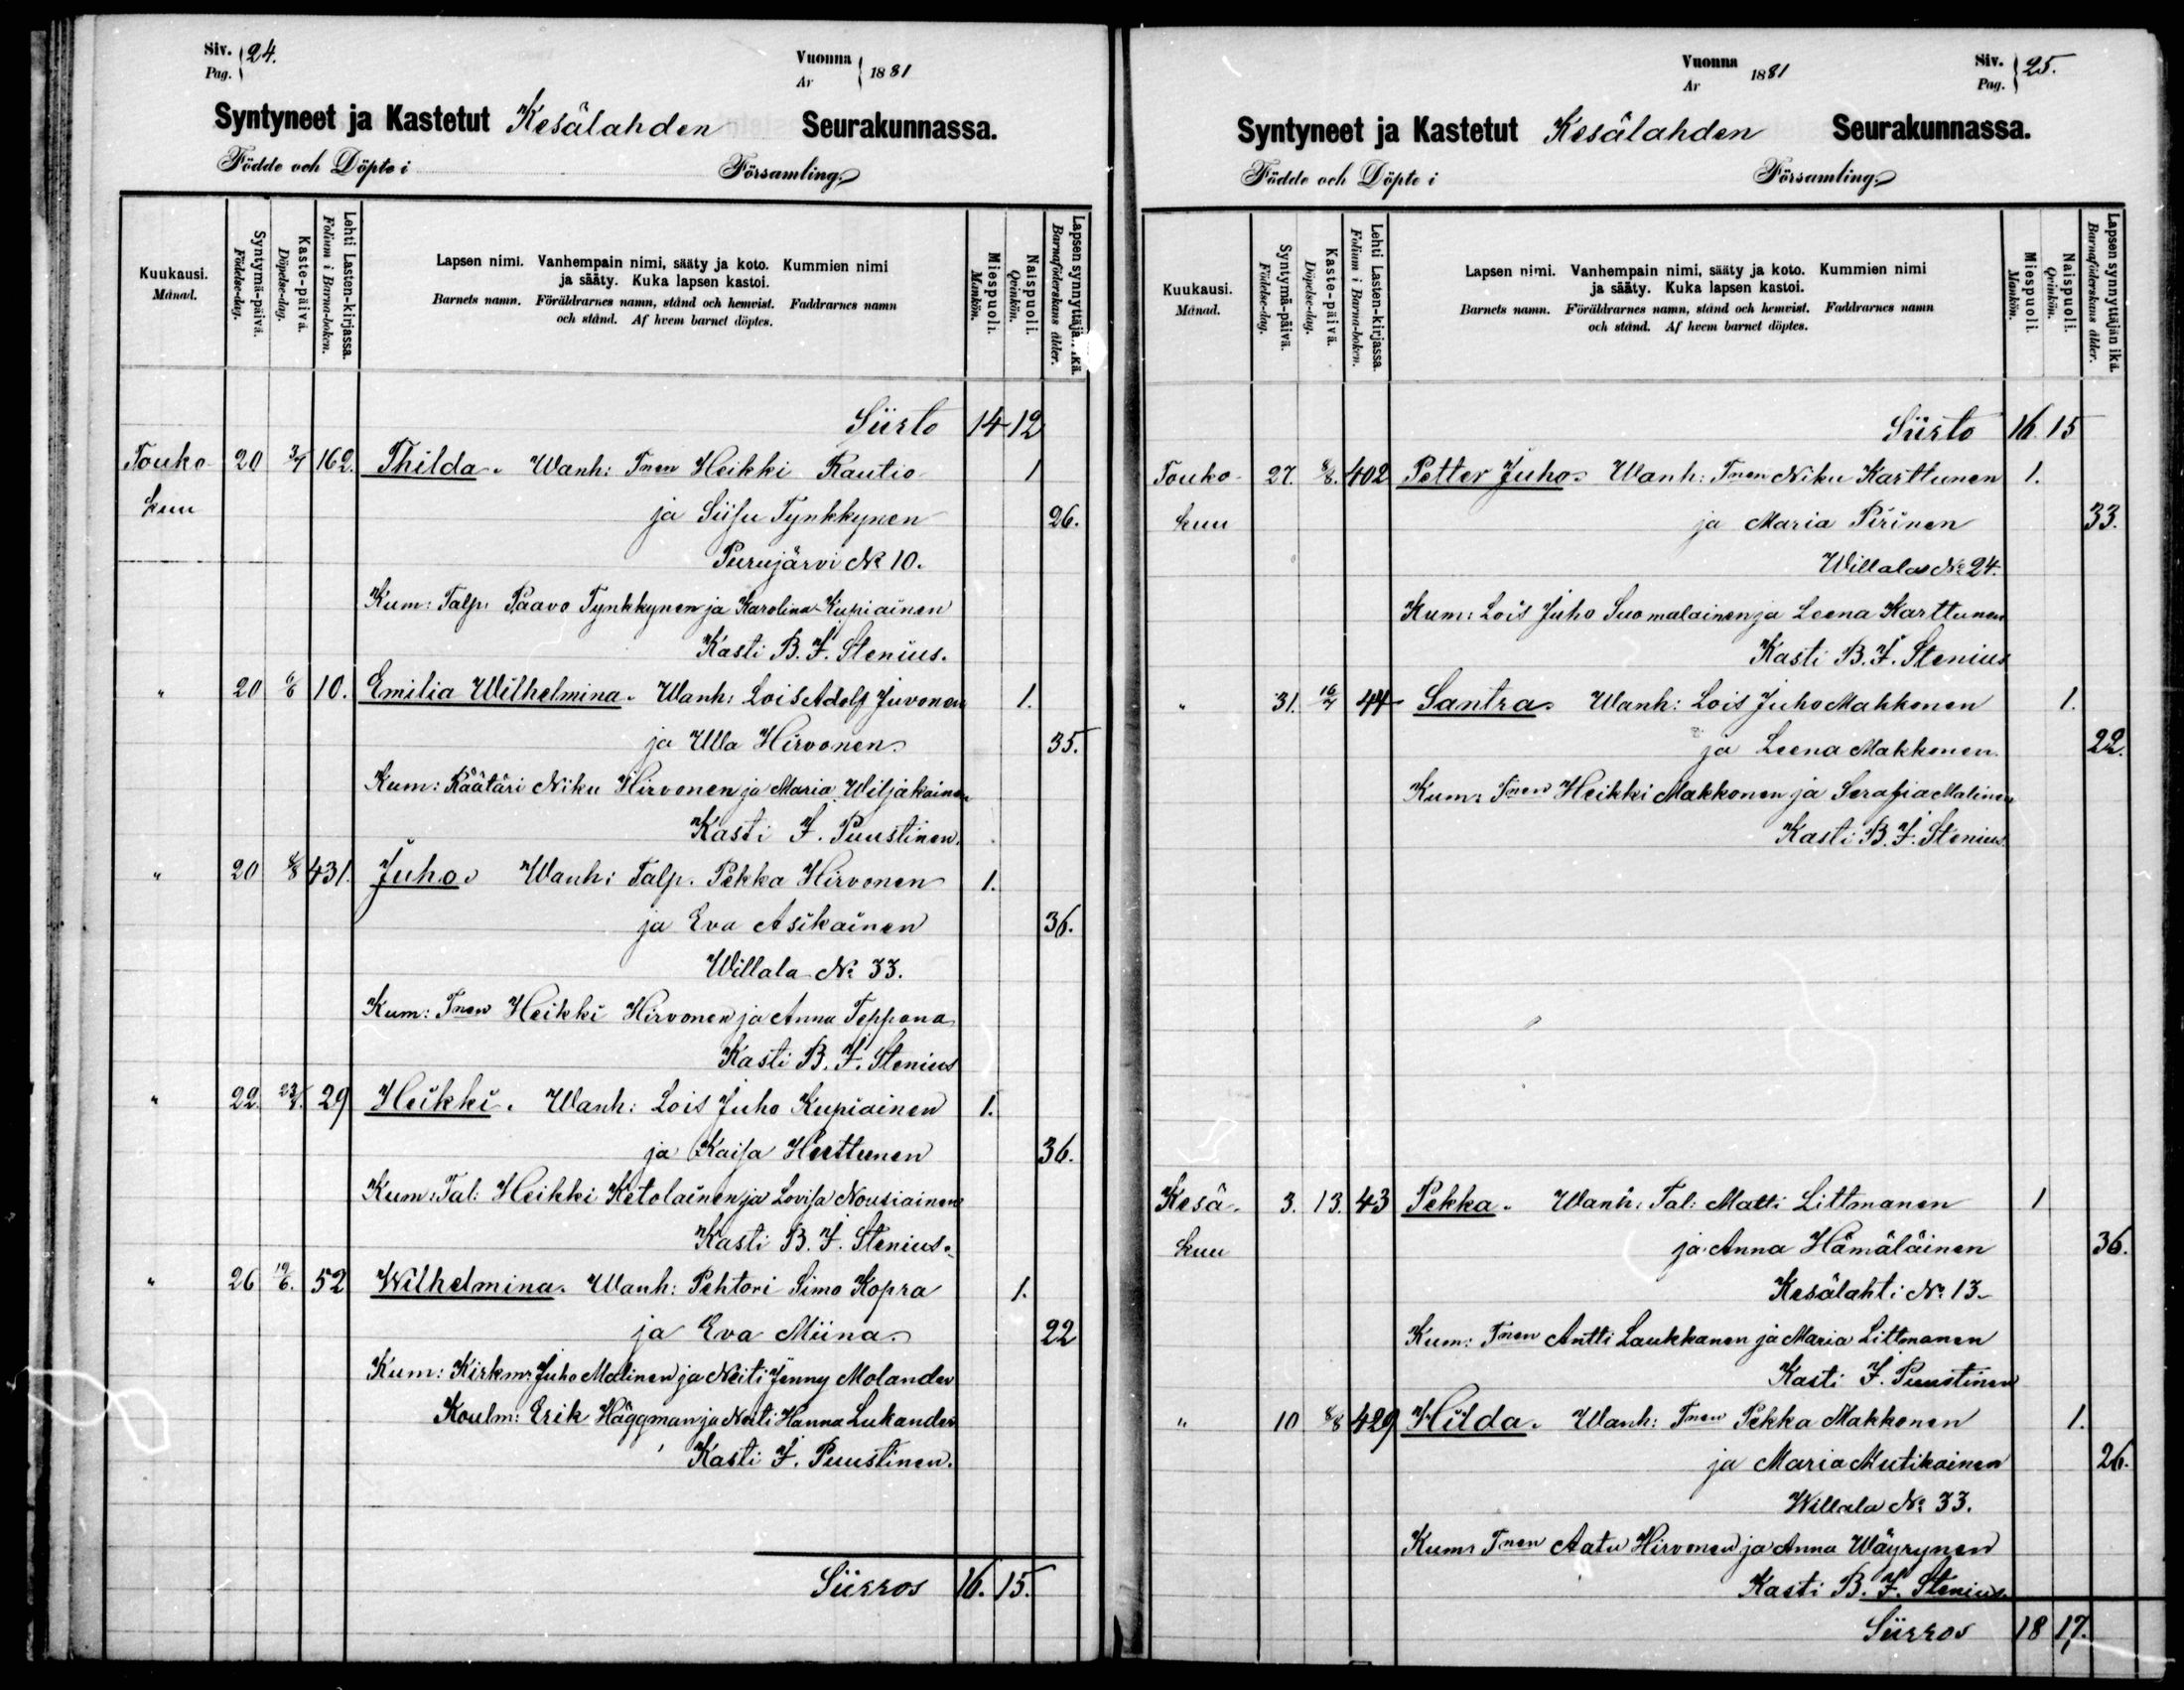 Siv. 24.
Pag.
Vuonna 1881
Ar
Syntyneet ja Kastetut Kesälahden Seurakunnassa.
Födde och Döpte i Församling.
Kuukausi.
Månad.
Syntymä-päivä.
Födelse-dag.
Kaste-päivä.
Döpelse-dag.
Lehti Lasten-kirjassa.
Folium i Barna-boken.
Lapsen nimi. Vanhempain nimi, sääty ja koto. Kummien nimi
ja sääty. Kuka lapsen kastoi.
Barnets namn. Föräldrarnes namn, stånd och hemvist. Faddrarnes namn
och stånd. Af hvem barnet döptes.
Miespuoli.
Mankön.
Naispuoli.
Qvinkön.
Lapsen synnyttäjä.. .kä.
Barnaföderskans ålder.
Siirto 14 12
Touko 20 3/7 162. Thilda. Wanh: Tnen Heikki Rautio 1
kuu ja Siisu Tynkkynen 26.
Purujärvi № 10.
Kum: Talp. Paavo Tynkkynen ja Karolina Kupiainen
Kasti B. F. Stenius.
" 20 6/6 10. Emilia Wilhelmina. Wanh: Lois Adolf Juvonen 1.
ja Ulla Hirvonen 35.
Kum: Räätäri Niku Hirvonen ja Maria Wiljakainen
Kasti F. Puustinen.
" 20 8/8 431. Juho. Wanh: Talp. Pekka Hirvonen 1.
ja Eva Asikainen 36.
Willala № 33.
Kum: Tnen Heikki Hirvonen ja Anna Teppana
Kasti B. F. Stenius
" 22. 23/7. 29 Heikki. Wanh: Lois Juho Kupiainen 1.
ja Kaisa Hirttunen 36.
Kum: Tal: Heikki Ketolainen ja Lovisa Nousiainen
Kasti B. F. Stenius.
" 26 12/6. 52 Wilhelmina. Wanh: Pehtori Simo Kopra 1.
ja Eva Miina 22
Kum: Kirkmr Juho Malinen ja Neiti Jenny Molander
Koulm: Erik Häggman ja Neiti Hanna Lukander
Kasti F. Puustinen.
Siirros 16. 15.
Vuonna 1881
Ar
Siv. 25.
Pag.
Syntyneet ja Kastetut Kesälahden Seurakunnassa.
Födde och Döpte i Församling.
Kuukausi.
Månad.
Syntymä-päivä.
Födelse-dag.
Kaste-päivä.
Döpelse-dag.
Lehti Lasten-kirjassa.
Folium i Barna-boken.
Lapsen nimi. Vanhempain nimi, sääty ja koto. Kummien nimi
ja sääty. Kuka lapsen kastoi.
Barnets namn. Föräldrarnes namn, stånd och hemvist. Faddrarnes namn
och stånd. Af hvem barnet döptes.
Miespuoli.
Mankön.
Naispuoli.
Qvinkön.
Lapsen synnyttäjän ikä.
Barnaföderskans ålder.
Siirto 16. 15
Touko 27. 8/8. 402 Petter Juho. Wanh: Tnen Niku Karttunen 1.
kuu ja Maria Pirinen 33.
Willala № 24.
Kum: Lois Juho Suomalainen ja Leena Karttunen
Kasti B. F. Stenius
" 31. 16/7 44 Santra. Wanh: Lois Juho Mahkonen 1.
ja Leena Makkonen 22.
Kum: Tnen Heikki Makkonen ja Serafia Malinen
Kasti B. F. Stenius.
Kesä. 3. 13. 43 Pekka. Wanh: Tal: Matti Littmanen 1
kuu ja Anna Hämäläinen 36.
Kesälahti № 13.
Kum: Tnen Antti Laukkanen ja Maria Littmanen
Kasti F. Puustinen
" 10 8/8 429 Hilda. Wanh: Tnen Pekka Makkonen 1.
ja Maria Mutikainen 26.
Willala № 33.
Kum: Tnen Aatu Hirvonen ja Anna Wäyrynen
Kasti B. F. Stenius.
Siirros 18 17.